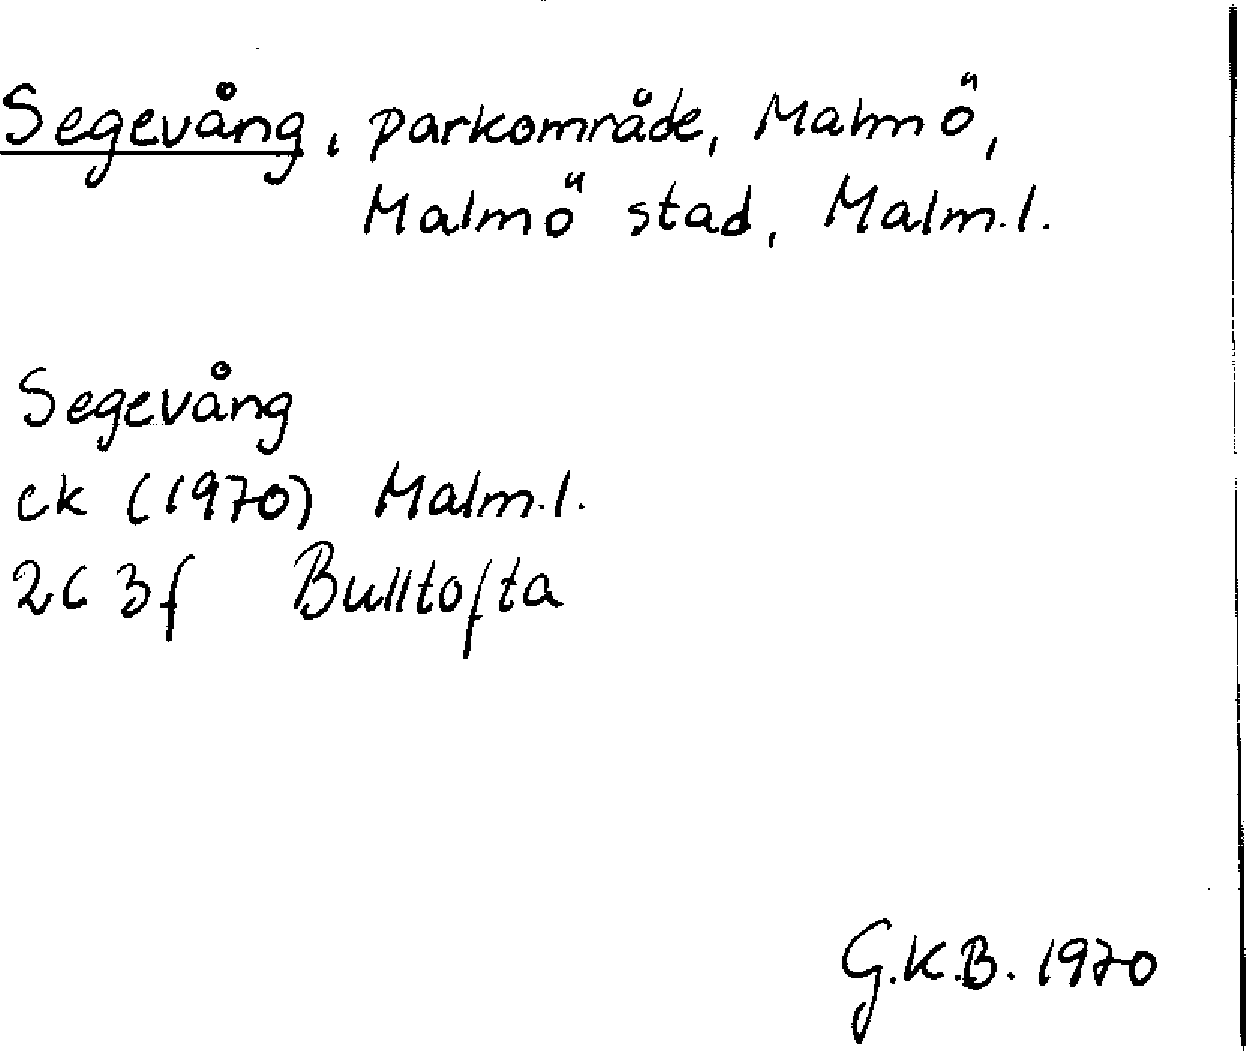 Segevång, parkområde, Malmö,
Malmö stad, Malm.l.
Segevång
ek (1970) Malm.l.
2C 3f Bulltofta
G.K.B. 1970